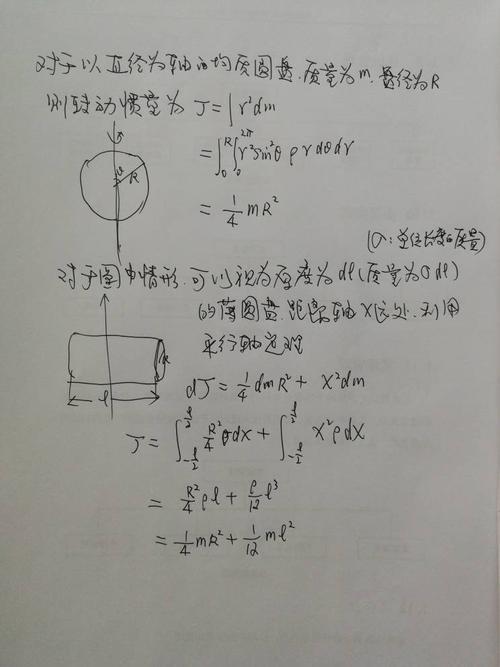 对于以直径为轴的均质圆盘.质量为m.盘径为R
则转动惯量为 J=∫r²dm
R
=∫₀ᴿ∫₀²π r²sin²θ ρ r dθdr
=1/4 mR²
(σ:单位长度的质量)
对于图中情形.可以视为厚度为dl(质量为σdl)
的薄圆盘.距离轴x远处.利用
平行轴定理
R
l
dJ=1/4 dmR²+x²dm
J=∫_{-l/2}^{l/2} R²/4 σdx+∫_{-l/2}^{l/2} x²ρdx
=R²/4 ρl+ρ/12 l³
=1/4 mR²+1/12 ml²